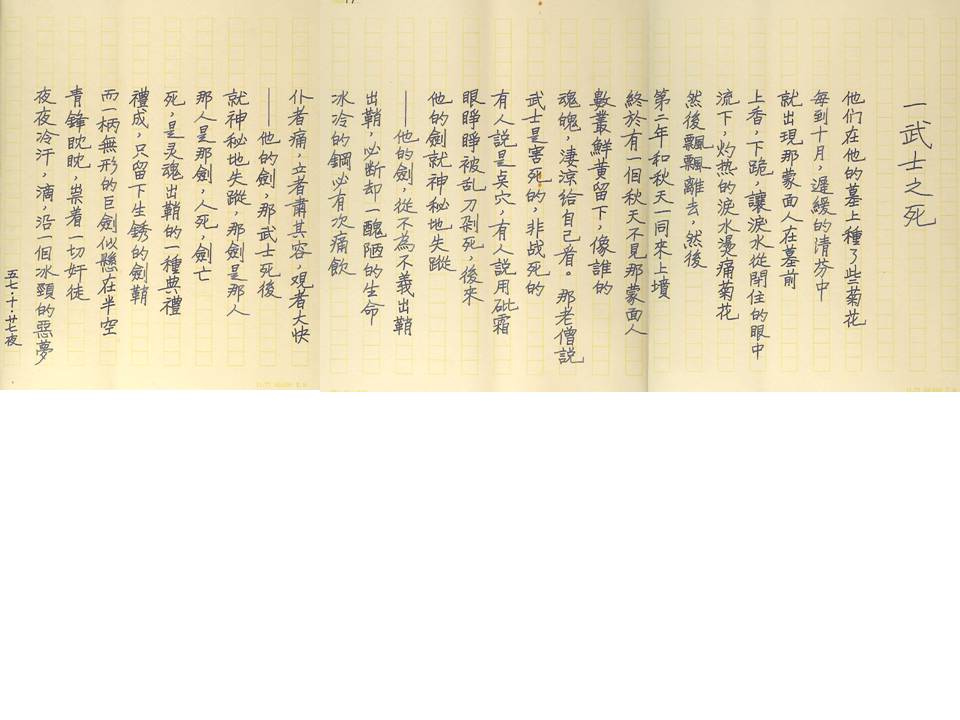 一武士之死
他們在他的墓上種了些菊花
每到十月，遲緩的清芬中
就出現那蒙面人在墓前
上香，下跪，讓淚水從閉住的眼中
流下，灼热的淚水燙痛菊花
然後飄飄離去，然後
第二年和秋天一同來上墳
終於有一個秋天不見那蒙面人
數叢鮮黃留下，像誰的
魂魄，淒涼給自己看。那老僧説
武士是害死的，非战死的
有人説是吳穴，有人説用砒霜
眼睜睜被乱刀剁死，後來
他的劍就神秘地失蹤
——他的劍，從不為不義出鞘
出鞘，必断却一醜陋的生命
冰冷的鋼必有次痛飲
仆者痛，立者肅其容，观者大快
——他的劍，那武士死後
就神秘地失蹤，那劍是那人
那人是那劍，人死，劍亡
死，是灵魂出鞘的一種典禮
禮成，只留下生銹的劍鞘
而一柄無形的巨劍似懸在半空
青鋒眈眈，祟着一切奸徒
夜夜冷汗，滴，沿一個冰頸的惡夢
五七·十·廿七夜